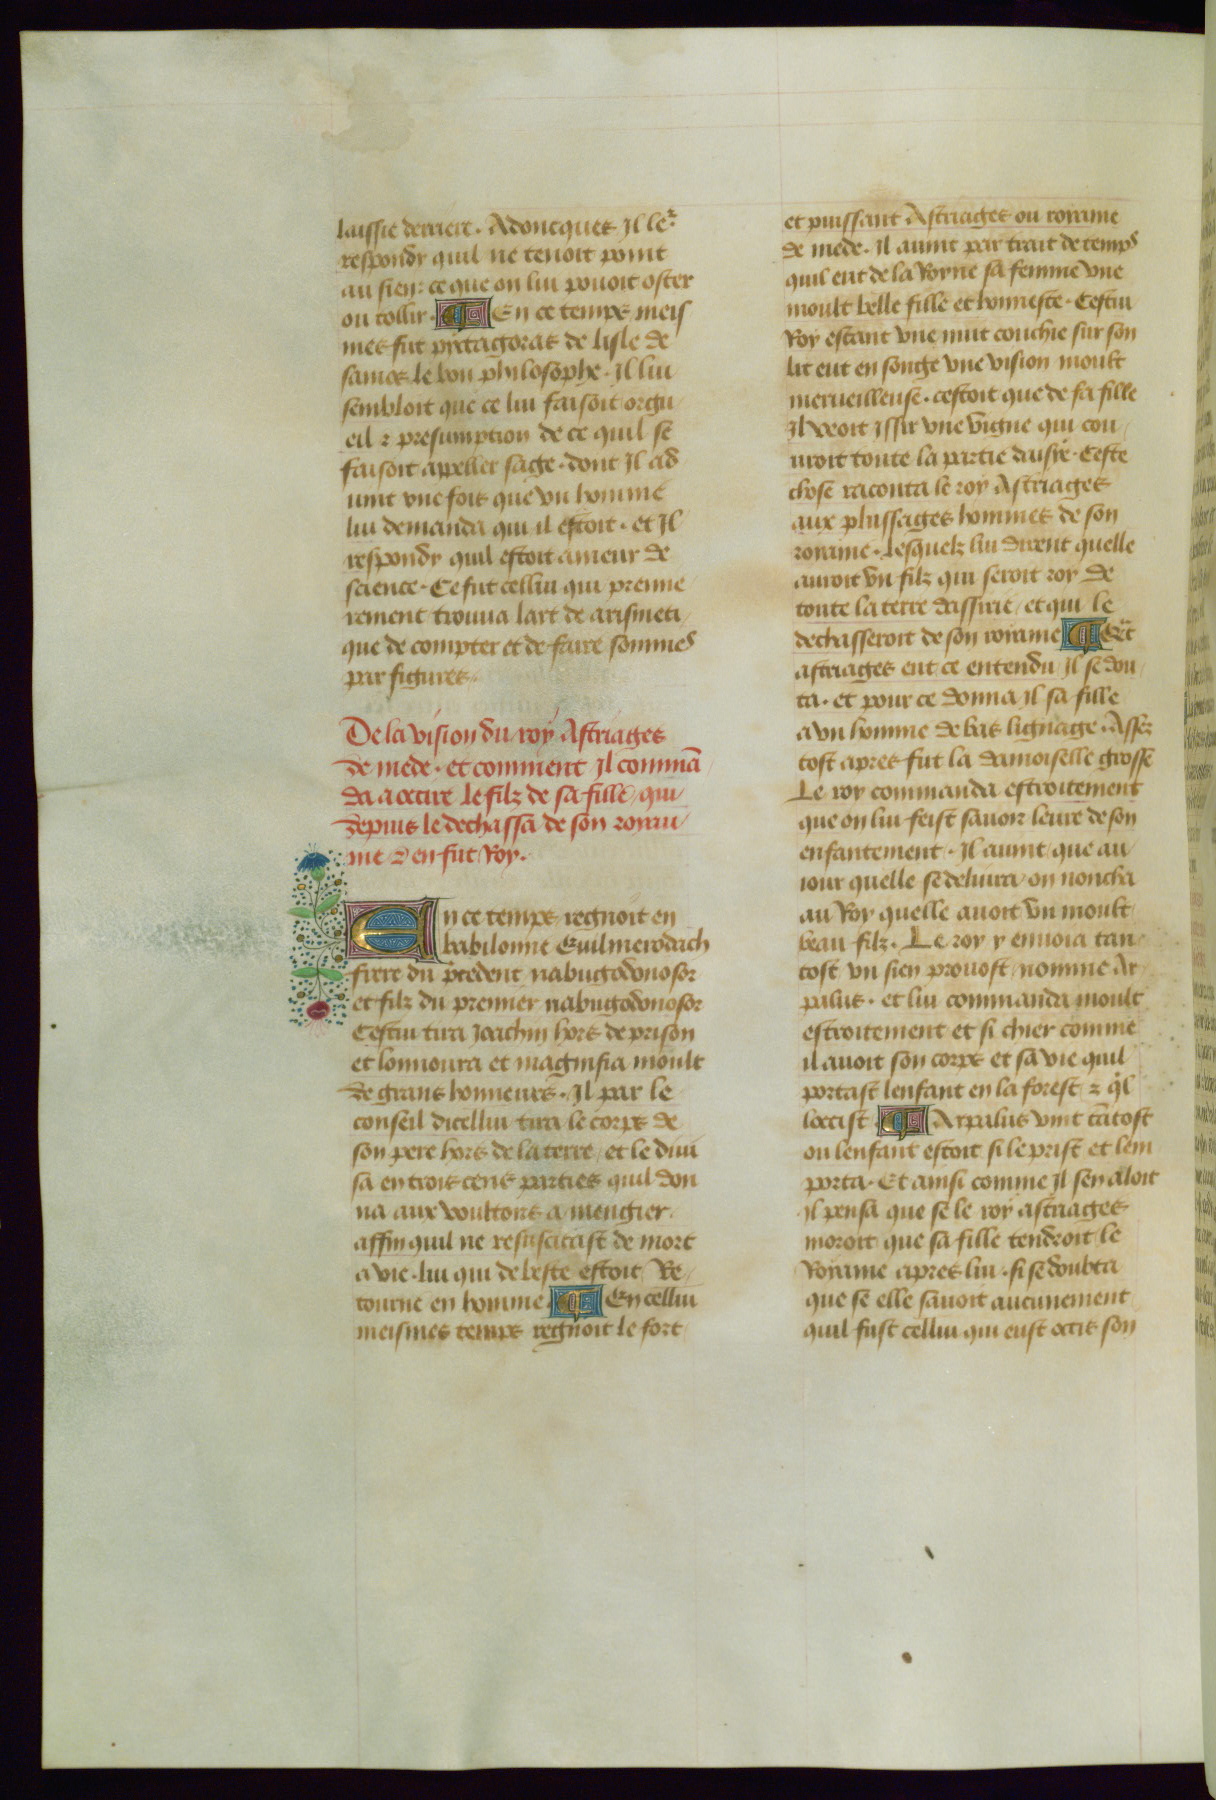 laissie derriere. Adoncques Il ler
respondy quil ne tenoit point
au sien: ce que on lui pouoit oster
ou tollir. En ce temps meis
mes fut pictagoras de lisle de
samos le bon philosophe. Il lui
sembloit que ce lui faisoit orgu
eil z presumption de ce quil se
faisoit appeller sage. dont Il ad
uint vne fois que vn homme
lui demanda qui il estoit. et Il
respondy quil estoit ameur de
science. Ce fut cellui qui premie
rement trouua lart de arismeti
que de compter et de faire sommes
par figures.
De la vision du roy Astriages
de mede. et comment Il commā
da a occire le filz de sa fille, qui
depuis le dechassa de son royau
me z en fut Roy.
En ce temps regnoit en
babilonne Euilmerodach
frere du p̄cedent nabugodonosor
et filz du premier nabugodonosor
Cestui tira Joachin hors de prison
et lonnoura et magnifia moult
de grans honneurs. Il par le
conseil dicellui tira le corps de
son pere hors de la terre, et le diui
sa en trois cens parties quil don
na aux voultoirs a mengier.
affin quil ne resuscitast de mort
a vie. lui qui de beste estoit Re
tourne en homme. En cellui
meismes temps regnoit le fort
et puissant Astriages ou royame
de mede. Il auint par trait de temps
quil eut de la Royne sa femme vne
moult belle fille et honneste. Cestui
Roy estant vne nuit couchie sur son
lit eut en songe vne vision moult
merueilleuse. cestoit que de sa fille
Il veoit Issir vne vigne qui cou
uroit toute la partie dasye. Ceste
chose raconta le roy Astriages
aux plussages hommes de son
royame. Lesquelz lui dirent quelle
auroit vn filz qui seroit roy de
toute la terre dassirie, et qui le
dechasseroit de son royame Qn̄t
astriages eut ce entendu Il se dou
ta. et pour ce donna Il sa fille
a vn homme de bas lignage. Assez
tost apres fut la damoiselle grosse
Le roy commanda estroitement
que on lui feist sauoir leure de son
enfantement. Il auint que au
iour quelle se deliura on noncha
au Roy quelle auoit vn moult
beau filz. Le roy y enuoia tan
tost vn sien prouost nomme Ar
palus. et lui commanda moult
estroitement et si chier comme
il auoit son corps et sa vie quil
portast lenfant en la forest z q̄l
loccist Arpalus vint tātost
ou lenfant estoit si le prist et lem
porta. Et ainsi comme Il sen aloit
il pensa que se le roy astriages
moroit que sa fille tendroit le
Royame apres lui. si se doubta
que se elle sauoit aucunement
quil fust cellui qui eust occis son